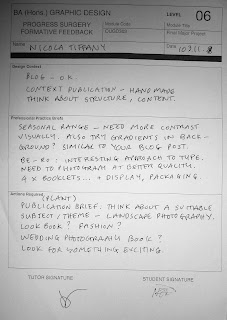 BA (Hons.) GRAPHIC DESIGN
PROGRESS SURGERY
FORMATIVE FEEDBACK
Module Code
LEVEL 06
Module Title
Final Major Project
Name
NICOLA TIFFANY
Date
Design Context
BLOG - OK.
CONTEXT PUBLICATION - HANDMADE
THINK ABOUT STRUCTURE, CONTENT.
Professional Practice Briefs
SEASONAL RANGE - NEED MORE CONTRAST
VISUALLY. ALSO TRY GRADIENTS IN BACK-
GROUND? SIMILAR TO YOUR BLOG POST.
BE-RO: INTERESTING APPROACH TO TYPE.
NEED TO PHOTOGRAPH AT BETTER QUALITY.
4 x BOOKLETS... + DISPLAY, PACKAGING.
Actions Required
(PLANT)
PUBLICATION BRIEF. THINK ABOUT A SUITABLE
SUBJECT/THEME - LANDSCAPE PHOTOGRAPHY.
LOOK BOOK? FASHION?
WEDDING PHOTOGRAPHY BOOK?
LOOK FOR SOMETHING EXCITING.
TUTOR SIGNATURE
STUDENT SIGNATURE